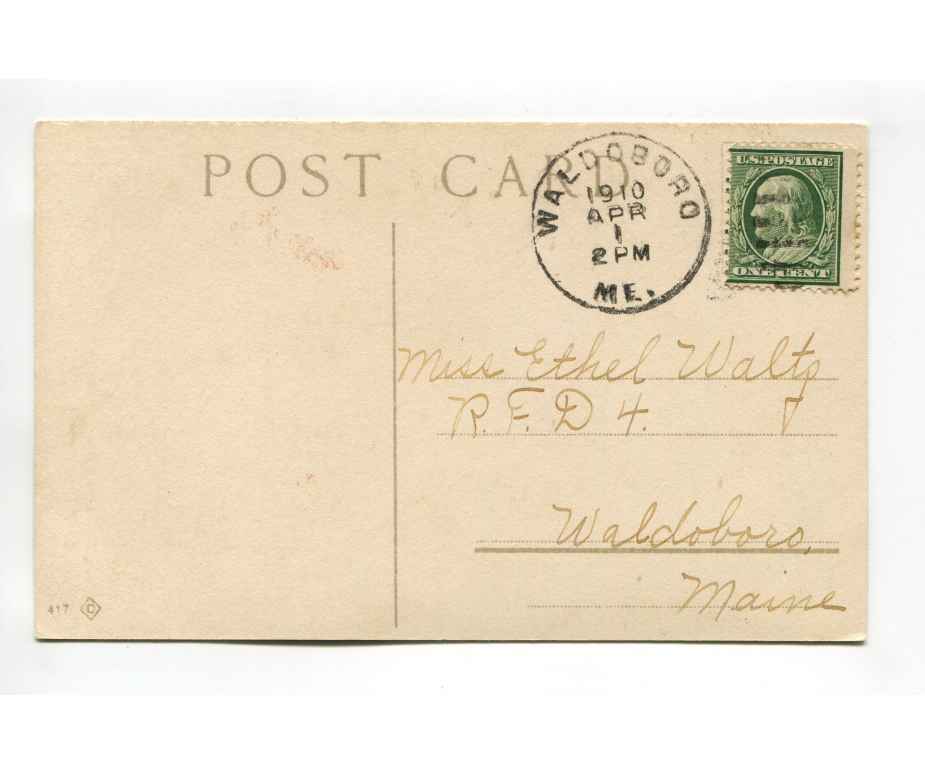 POST CARD
WALDOBORO
1910
APR
1
2 PM
ME.
U.S. POSTAGE
ONE CENT
Miss Ethel Waltz
R. F. D 4.
Waldoboro,
Maine
417 C